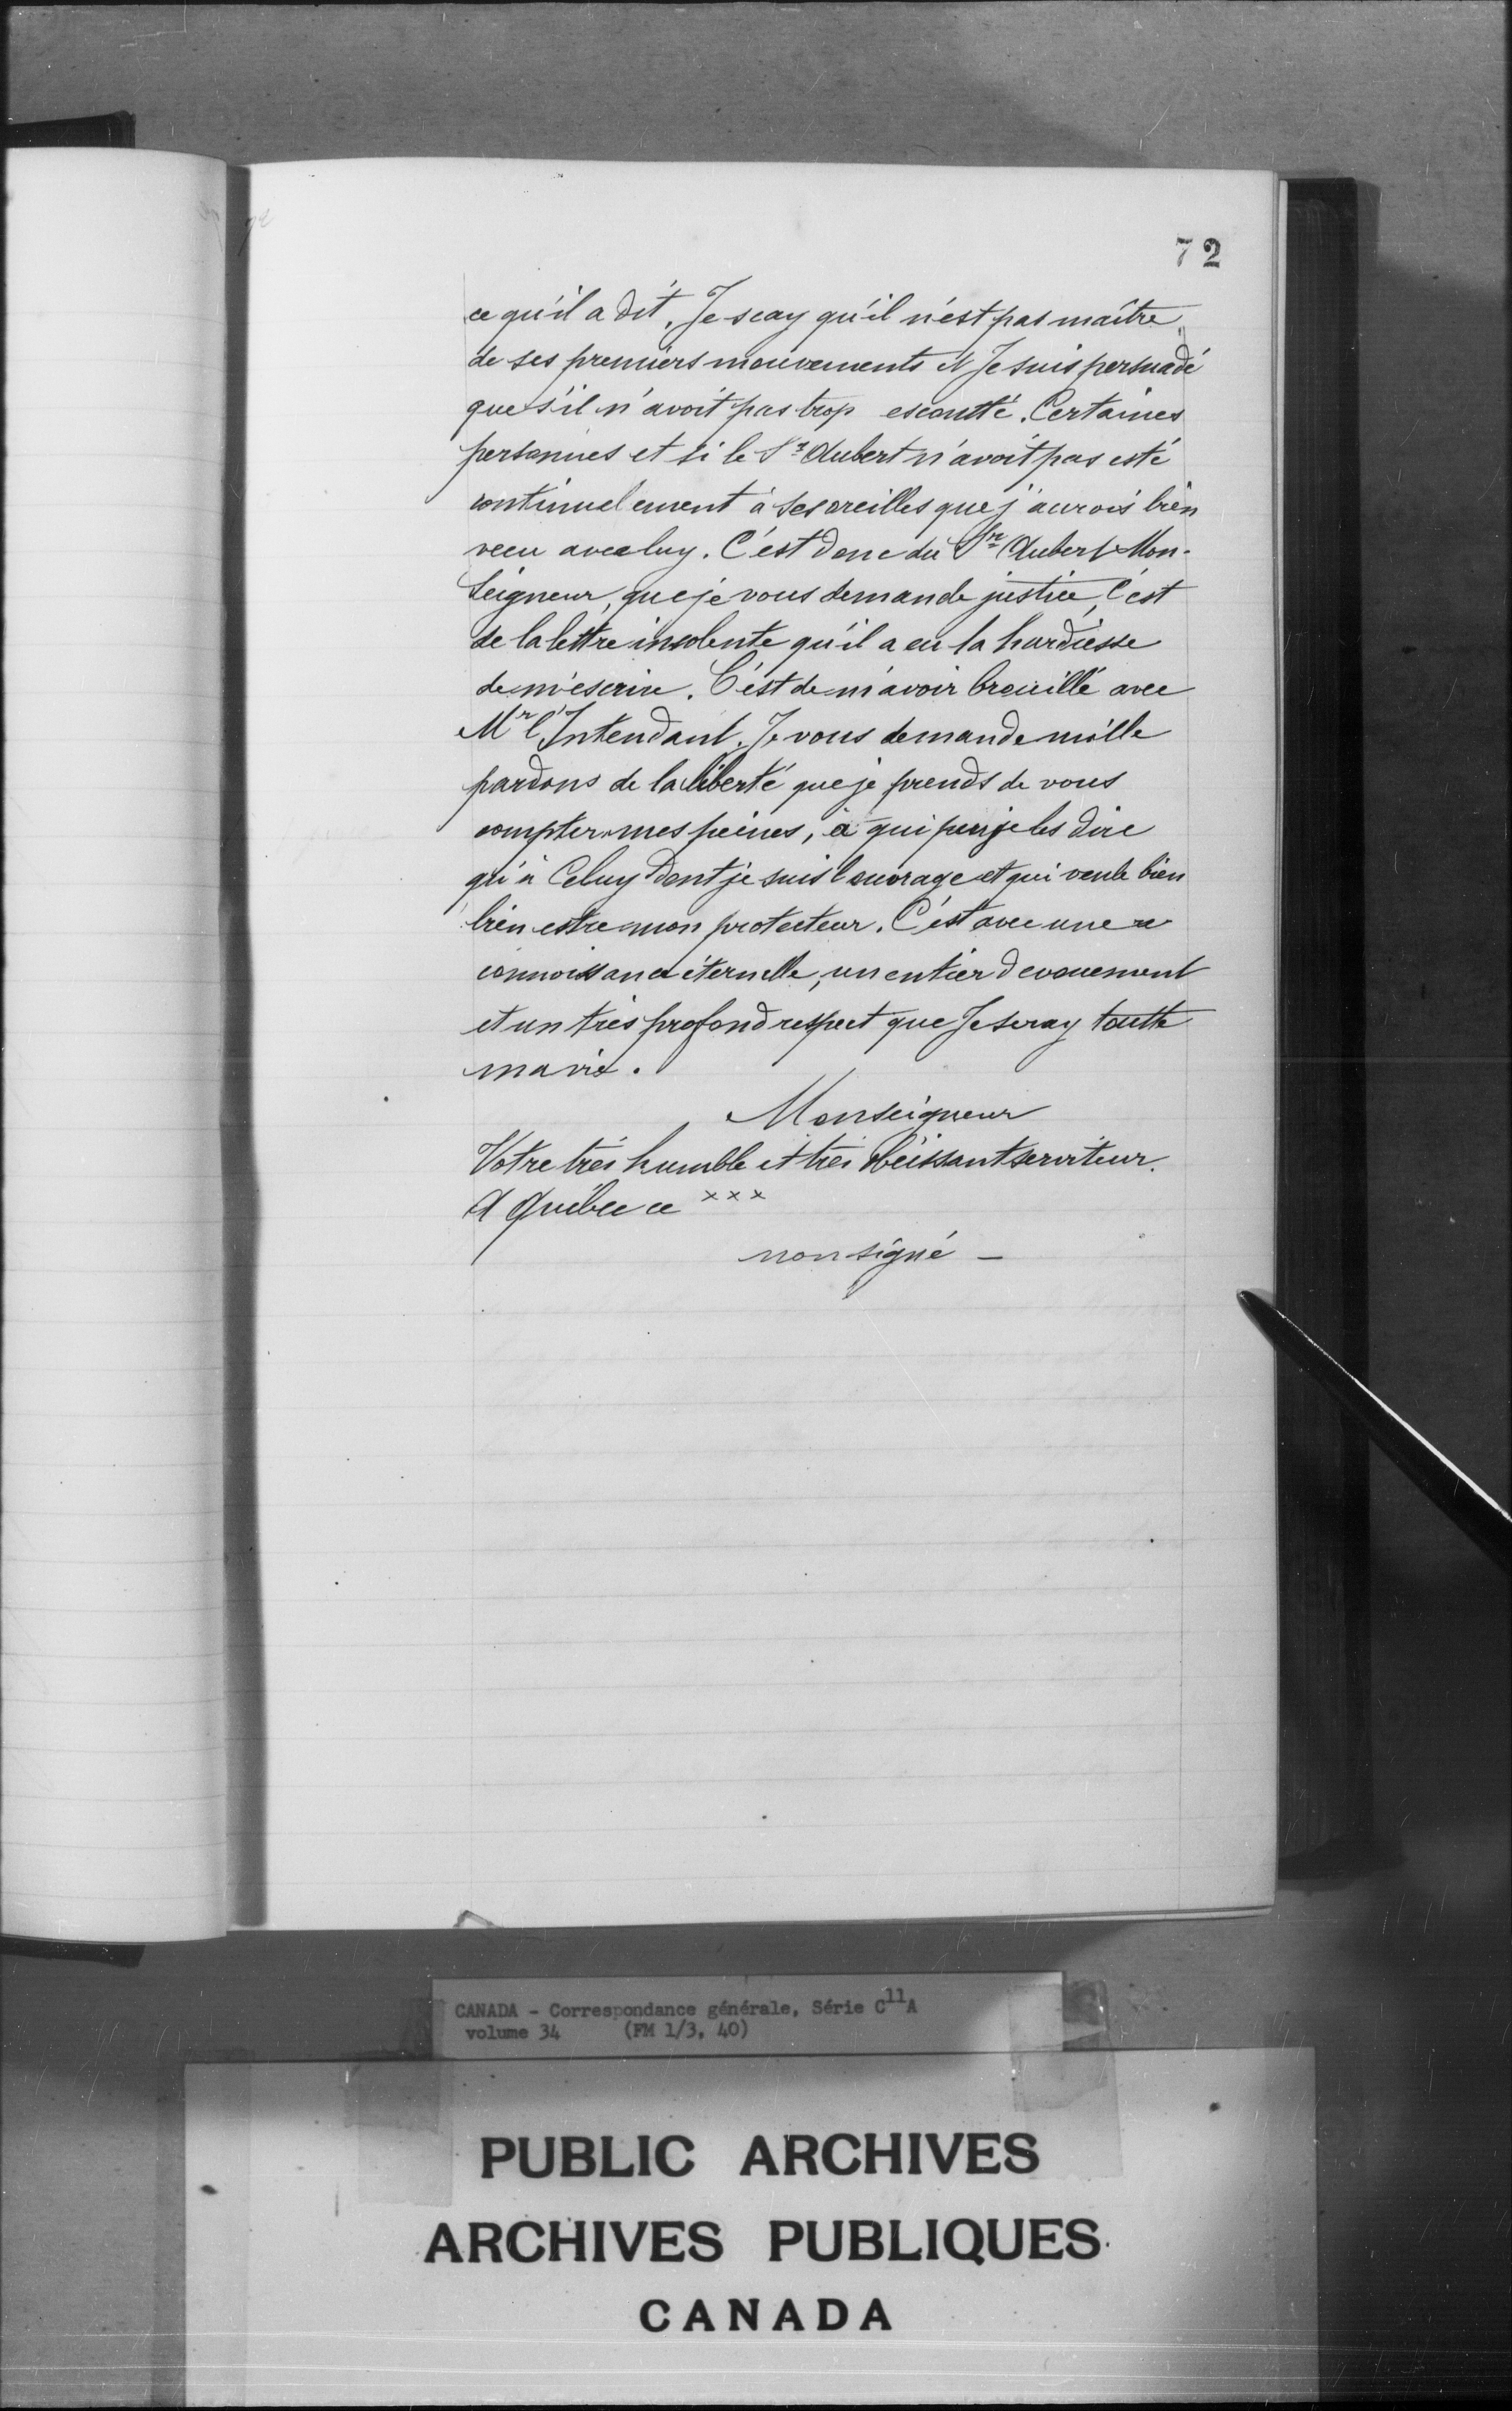 72
ce qu'il a dit. Je scay qu'il n'est pas maître
de ses premiers mouvements et Je suis persuadé
que s'il n'avoit pas trop escoutté. Certaines
personnes et si le Sr Aubert n'avoit pas esté
continuelement à ses oreilles que j'aurois bien
vecu avec luy. C'est donc du Sr Aubert Mon-
seigneur, que je vous demande justice, C'est
de la lettre insolente qu'il a eu la hardiesse
de m'escrire. C'est de m'avoir brouillé avec
Mr l'Intendant. Je vous demande mille
pardons de la liberté que je prends de vous
compter mes peines, à qui puis je les dire
qu'à Celuy dont je suis l'ouvrage et qui veule bien
bien estre mon protecteur. C'est avec une re
connoissance éternelle, un entier devouement
et un très profond respect que Je seray toutte
ma vie.
Monseigneur
Votre très humble et très obéissant serviteur.
A Québec ce xxx
non signé —
CANADA - Correspondance générale, Série C11A
volume 34 (FM 1/3, 40)
PUBLIC ARCHIVES
ARCHIVES PUBLIQUES
CANADA